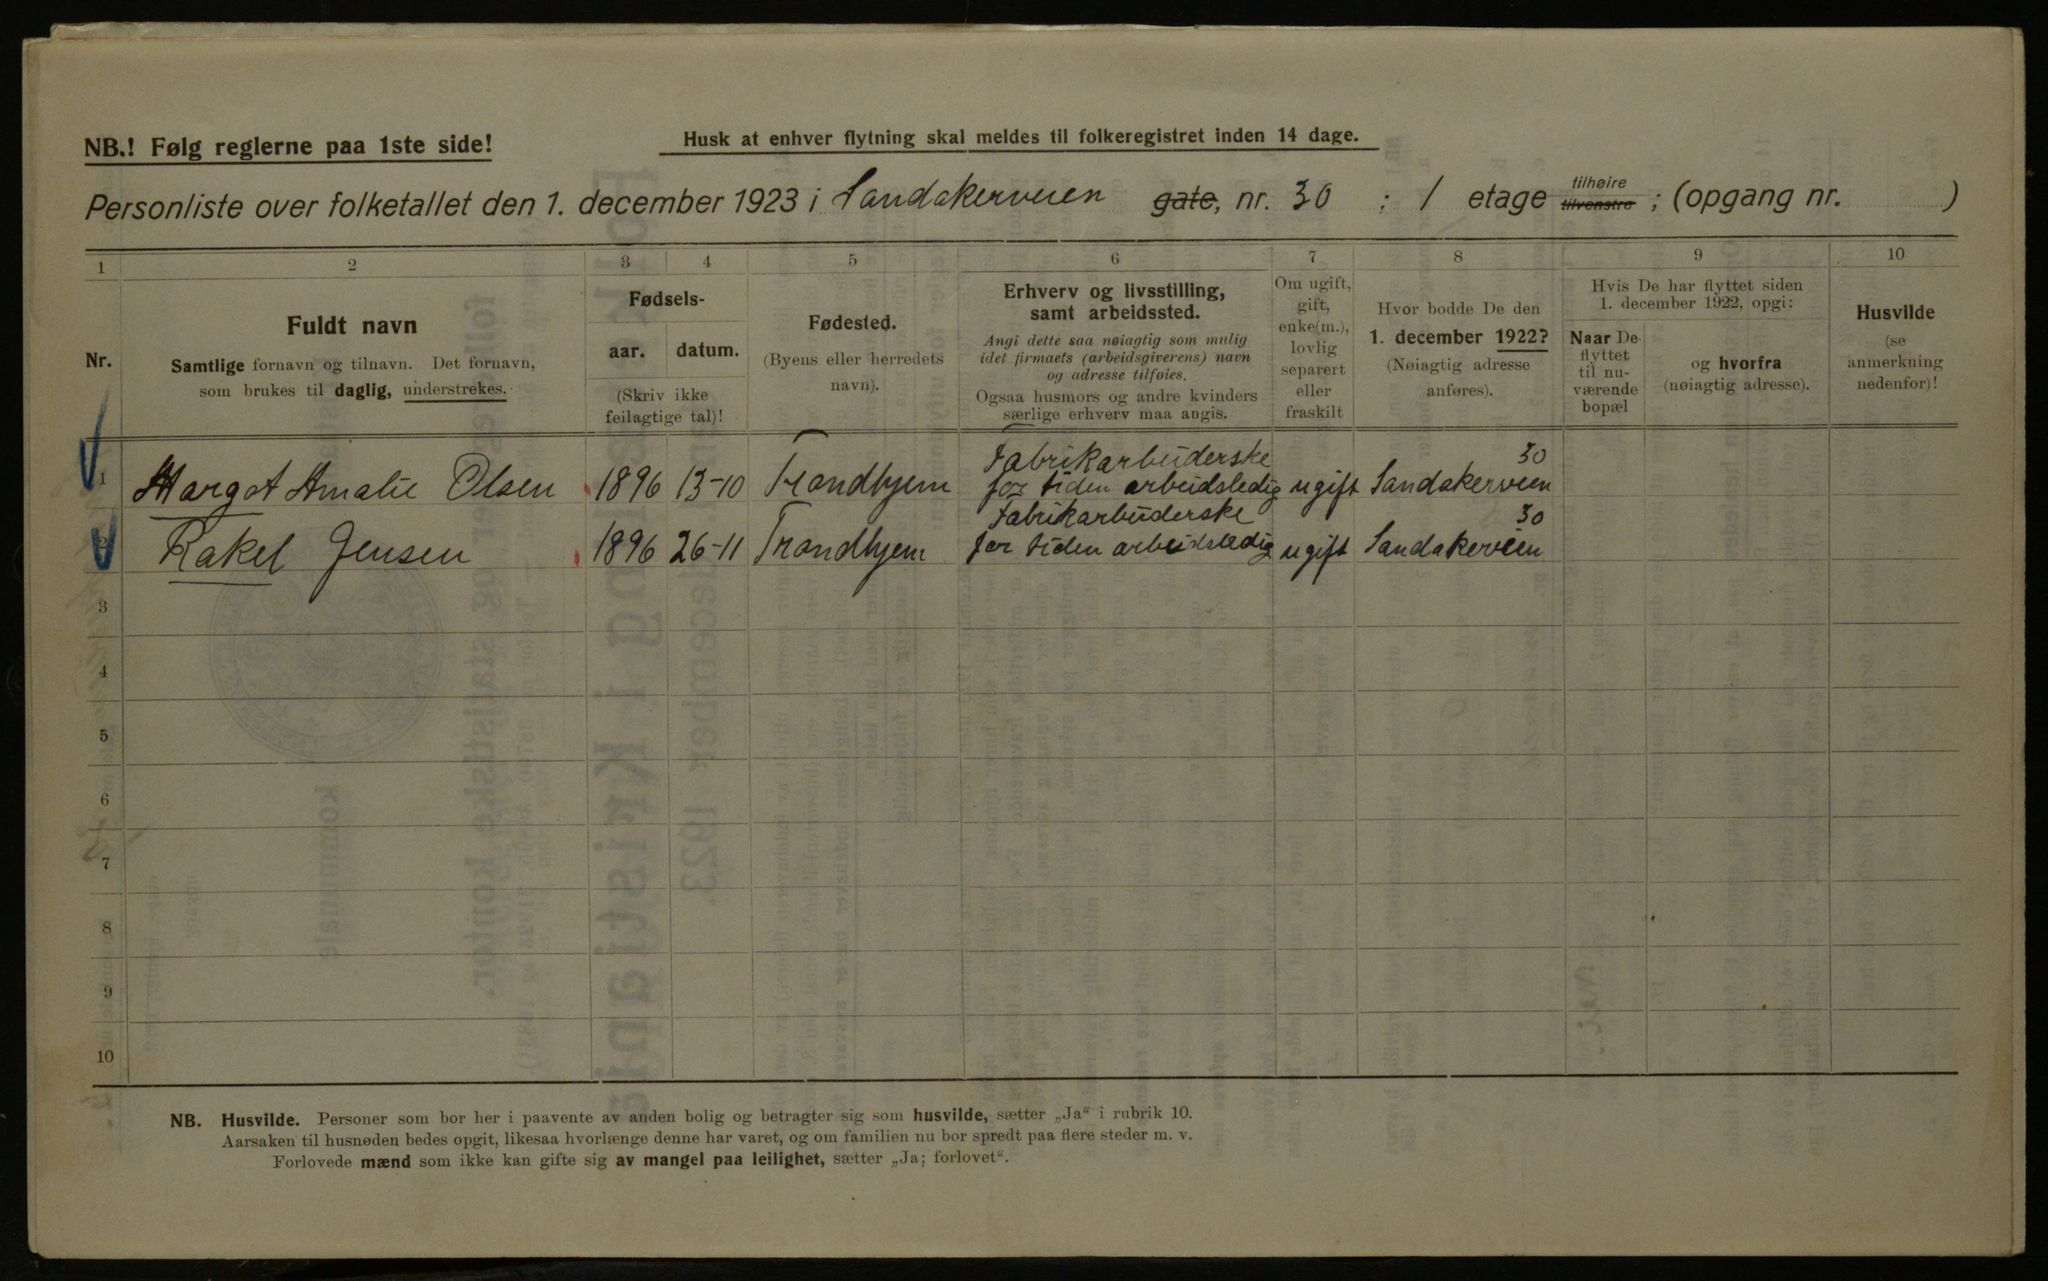 NB.! Følg reglerne paa 1ste side!
Husk at enhver flytning skal meldes til folkeregistret inden 14 dage.
Personliste over folketallet den 1. december 1923 i Sandakerveien gate, nr. 30 ; 1 etage tilhøire tilvenstre ; (opgang nr. )
1 2 3 4 5 6 7 8 9 10
Nr.
Fuldt navn
Samtlige fornavn og tilnavn. Det fornavn,
som brukes til daglig, understrekes.
Fødsels-
aar. datum.
(Skriv ikke
feilagtige tal)!
Fødested.
(Byens eller herredets
navn).
Erhverv og livsstilling,
samt arbeidssted.
Angi dette saa nøiagtig som mulig
idet firmaets (arbeidsgiverens) navn
og adresse tilføies.
Ogsaa husmors og andre kvinders
særlige erhverv maa angis.
Om ugift,
gift,
enke(m.),
lovlig
separert
eller
fraskilt
Hvor bodde De den
1. december 1922?
(Nøiagtig adresse
anføres).
Hvis De har flyttet siden
1. december 1922, opgi:
Naar De
flyttet
til nu-
værende
bopæl
og hvorfra
(nøiagtig adresse).
Husvilde
(se
anmerkning
nedenfor)!
Fabrikarbeiderske 30
1 Margot Amalie Olsen 1896 13-10 Trondhjem for tiden arbeidsledig ugift Sandakerveien
Fabrikarbeiderske 30
2 Rakel Jensen 1896 26-11 Trondhjem for tiden arbeidsledig ugift Sandakerveien
3
4
5
6
7
8
9
10
NB. Husvilde. Personer som bor her i paavente av anden bolig og betragter sig som husvilde, sætter „Ja“ i rubrik 10.
Aarsaken til husnøden bedes opgit, likesaa hvorlænge denne har varet, og om familien nu bor spredt paa flere steder m. v.
Forlovede mænd som ikke kan gifte sig av mangel paa leilighet, sætter „Ja; forlovet“.